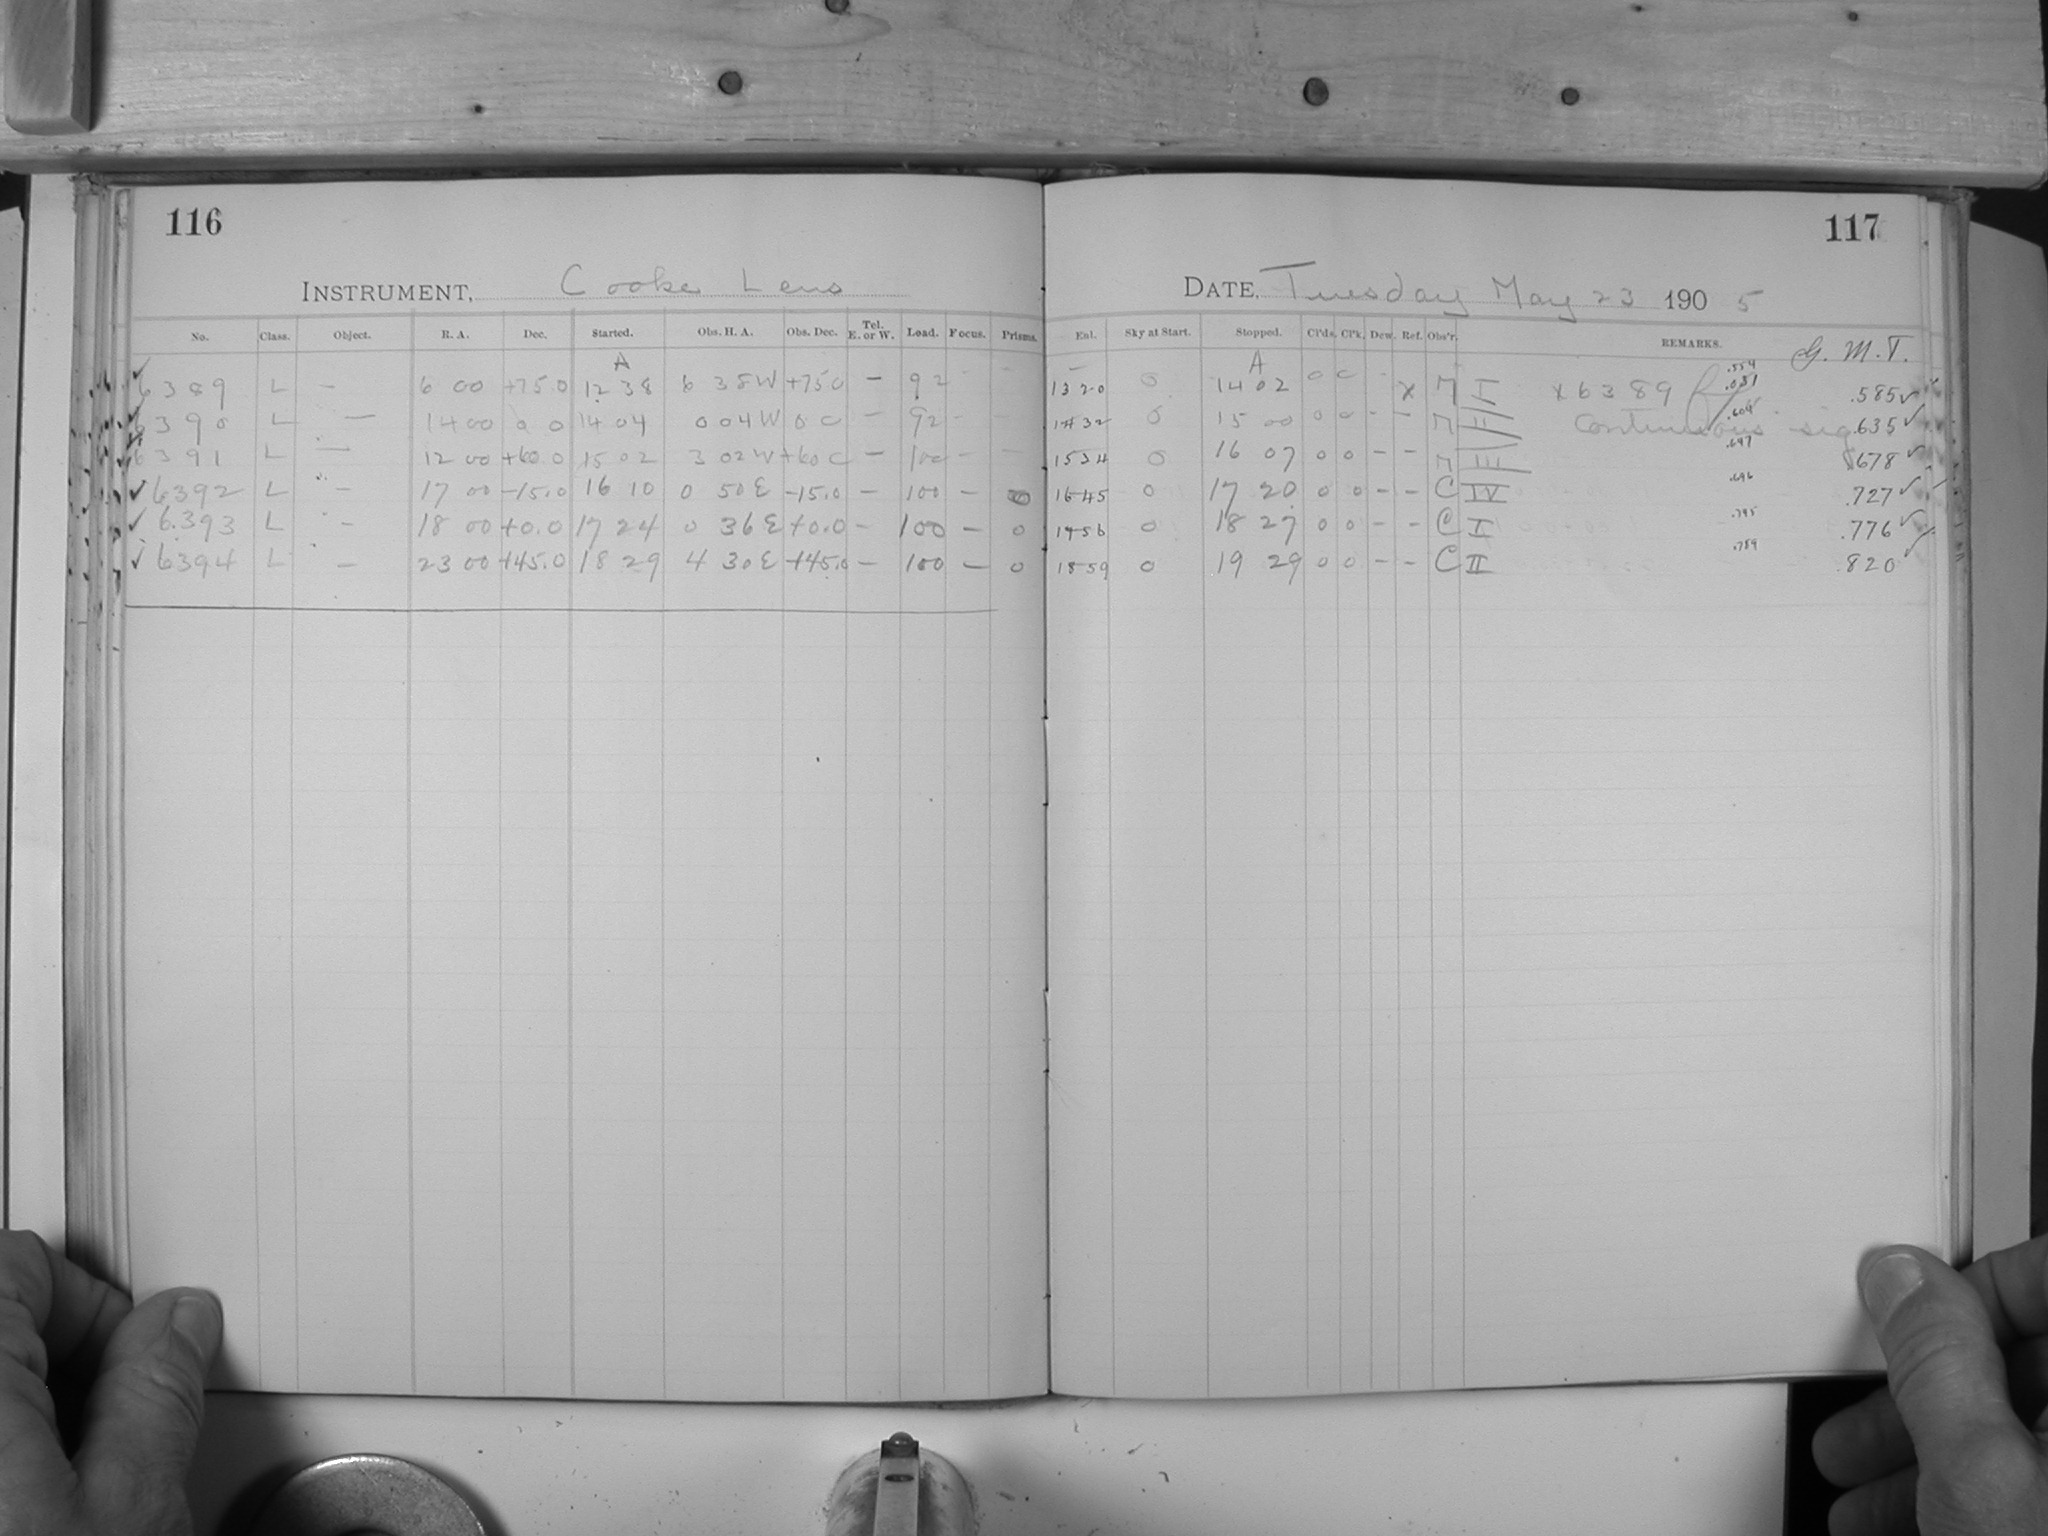 116
INSTRUMENT, Cooke Lens
No. Class. Object. R. A. Dec. Started. Obs. H. A. Obs. Dec. Tel. E. or W. Load. Focus. Prisms.
A
6389 L — 6 00 +75.0 12 38 6 38W +75.0 — 92
6390 L — 14 00 0 0 14 04 0 04W 0 0 — 92 -
6391 L — 12 00 +60.0 15 02 3 02W +60 0 — 100 - —
✓6392 L — 17 00 -15.0 16 10 0 50E -15.0 — 100 —
✓6393 L — 18 00 +0.0 17 24 0 36E +0.0 — 100 — 0
✓6394 L — 23 00 +45.0 18 29 4 30E +45.0 — 100 — 0
117
DATE, Tuesday May 23 1905
Enl. Sky at Start. Stopped. Cl'ds. Cl'k. Dew. Ref. Obs'r. REMARKS. G. M. T.
A .554
1320 0 14 02 0 0 - x M I x 6389 .031 .585✓
1432 0 15 00 0 0 - - M II Continuous sig .604 .635✓
1534 0 16 07 0 0 - - M III .647 .678✓
1645 0 17 20 0 0 - - C IV .696 .727✓
1756 0 18 27 0 0 - - C I .745 .776✓
1859 0 19 29 0 0 - - C II .789 .820✓